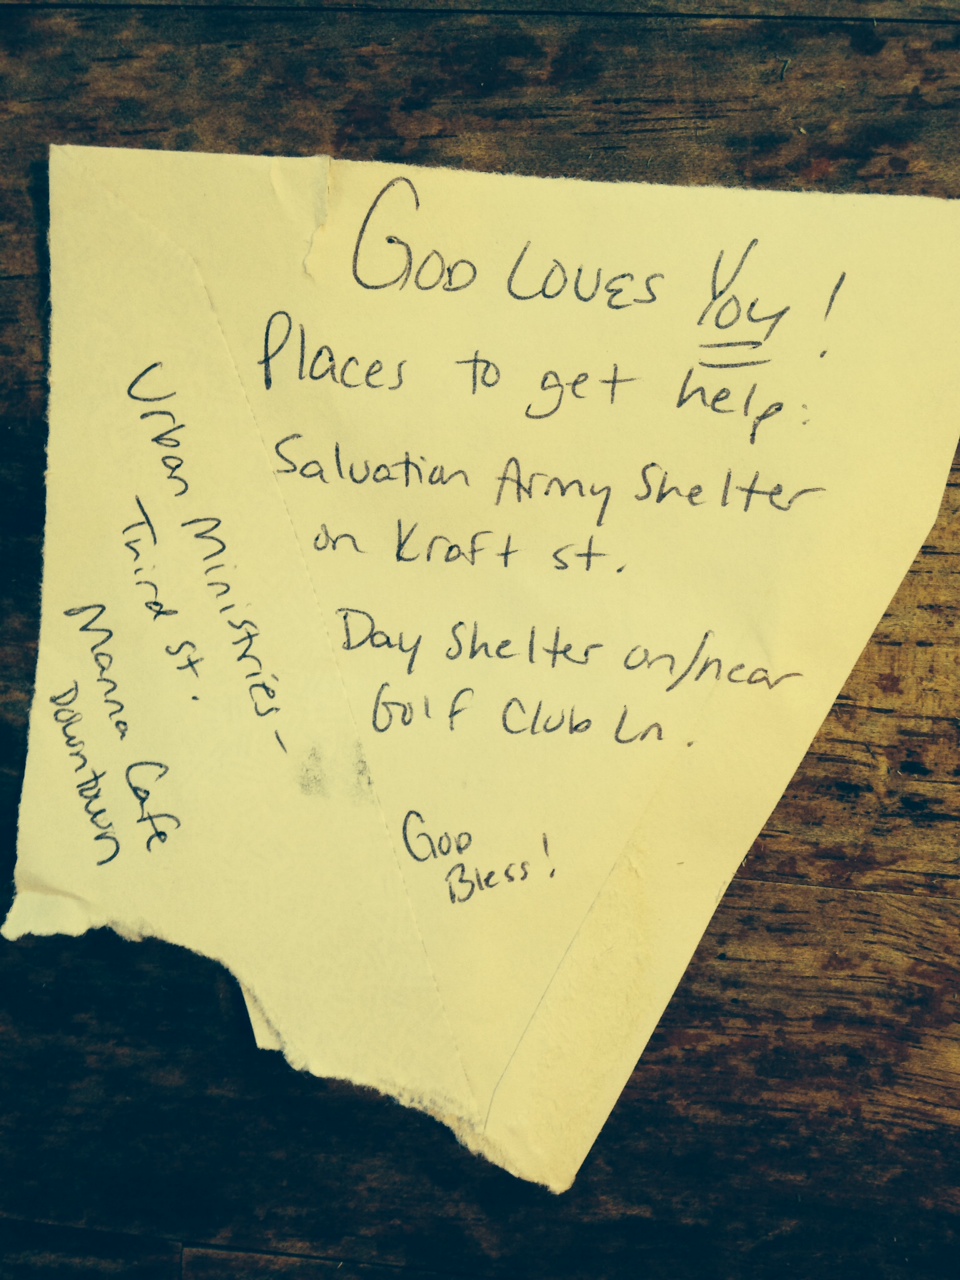 God Loves You!
Places to get help:
Salvation Army Shelter
on Kraft st.
Day Shelter on/near
Golf Club Ln.
God
Bless!
Urban Ministries -
Third st.
Manna Cafe
Downtown